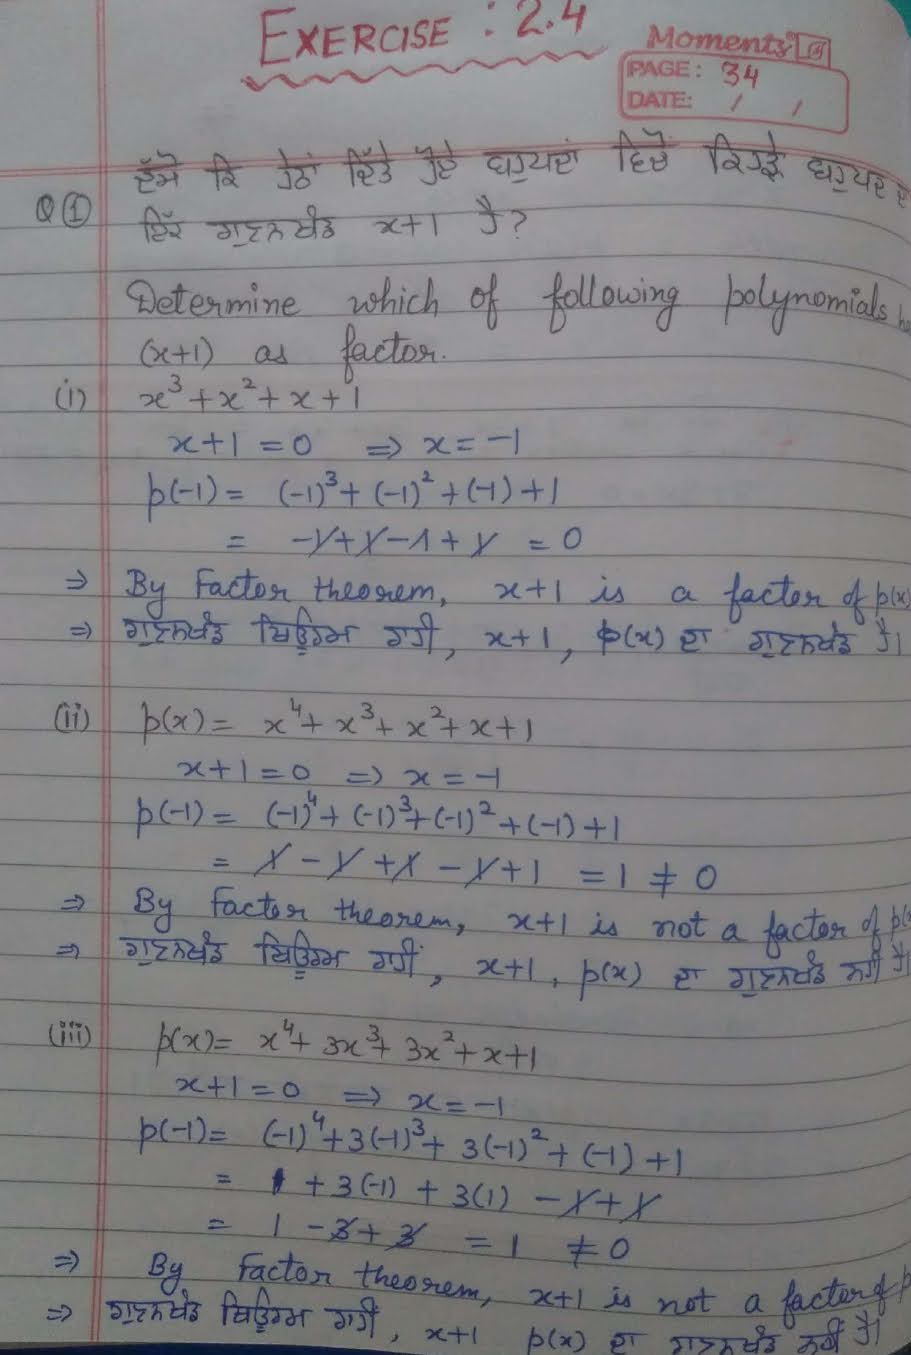 EXERCISE : 2.4
Moments
PAGE: 34
DATE: / /
ਦੱਸੋ ਕਿ ਹੇਠਾਂ ਦਿੱਤੇ ਹੋਏ ਬਹੁਪਦਾਂ ਵਿਚੋਂ ਕਿਹੜੇ ਬਹੁਪਦ ਦ
Q① ਇੱਕ ਗੁਣਨਖੰਡ x+1 ਹੈ?
Determine which of following polynomials
(x+1) as factor.
(i) x³ + x² + x + 1
x+1 = 0 ⇒ x = -1
p(-1) = (-1)³ + (-1)² + (-1) + 1
= -1+1-1+1 = 0
⇒ By Factor theorem, x+1 is a factor of p(x)
⇒ ਗੁਣਨਖੰਡ ਥਿਊਰਮ ਰਾਹੀਂ, x+1, p(x) ਦਾ ਗੁਣਨਖੰਡ ਹੈ।
(ii) p(x) = x⁴ + x³ + x² + x + 1
x+1 = 0 ⇒ x = -1
p(-1) = (-1)⁴ + (-1)³ + (-1)² + (-1) + 1
= 1 - 1 + 1 - 1 + 1 = 1 ≠ 0
⇒ By Factor theorem, x+1 is not a factor of p(x
⇒ ਗੁਣਨਖੰਡ ਥਿਊਰਮ ਰਾਹੀਂ, x+1, p(x) ਦਾ ਗੁਣਨਖੰਡ ਨਹੀਂ ਹੈ।
(iii) p(x) = x⁴ + 3x³ + 3x² + x + 1
x+1 = 0 ⇒ x = -1
p(-1) = (-1)⁴ + 3(-1)³ + 3(-1)² + (-1) + 1
= 1 + 3(-1) + 3(1) - 1 + 1
= 1 - 3 + 3 = 1 ≠ 0
⇒ By Factor theorem, x+1 is not a factor of p
⇒ ਗੁਣਨਖੰਡ ਥਿਊਰਮ ਰਾਹੀਂ, x+1 p(x) ਦਾ ਗੁਣਨਖੰਡ ਨਹੀਂ ਹੈ।